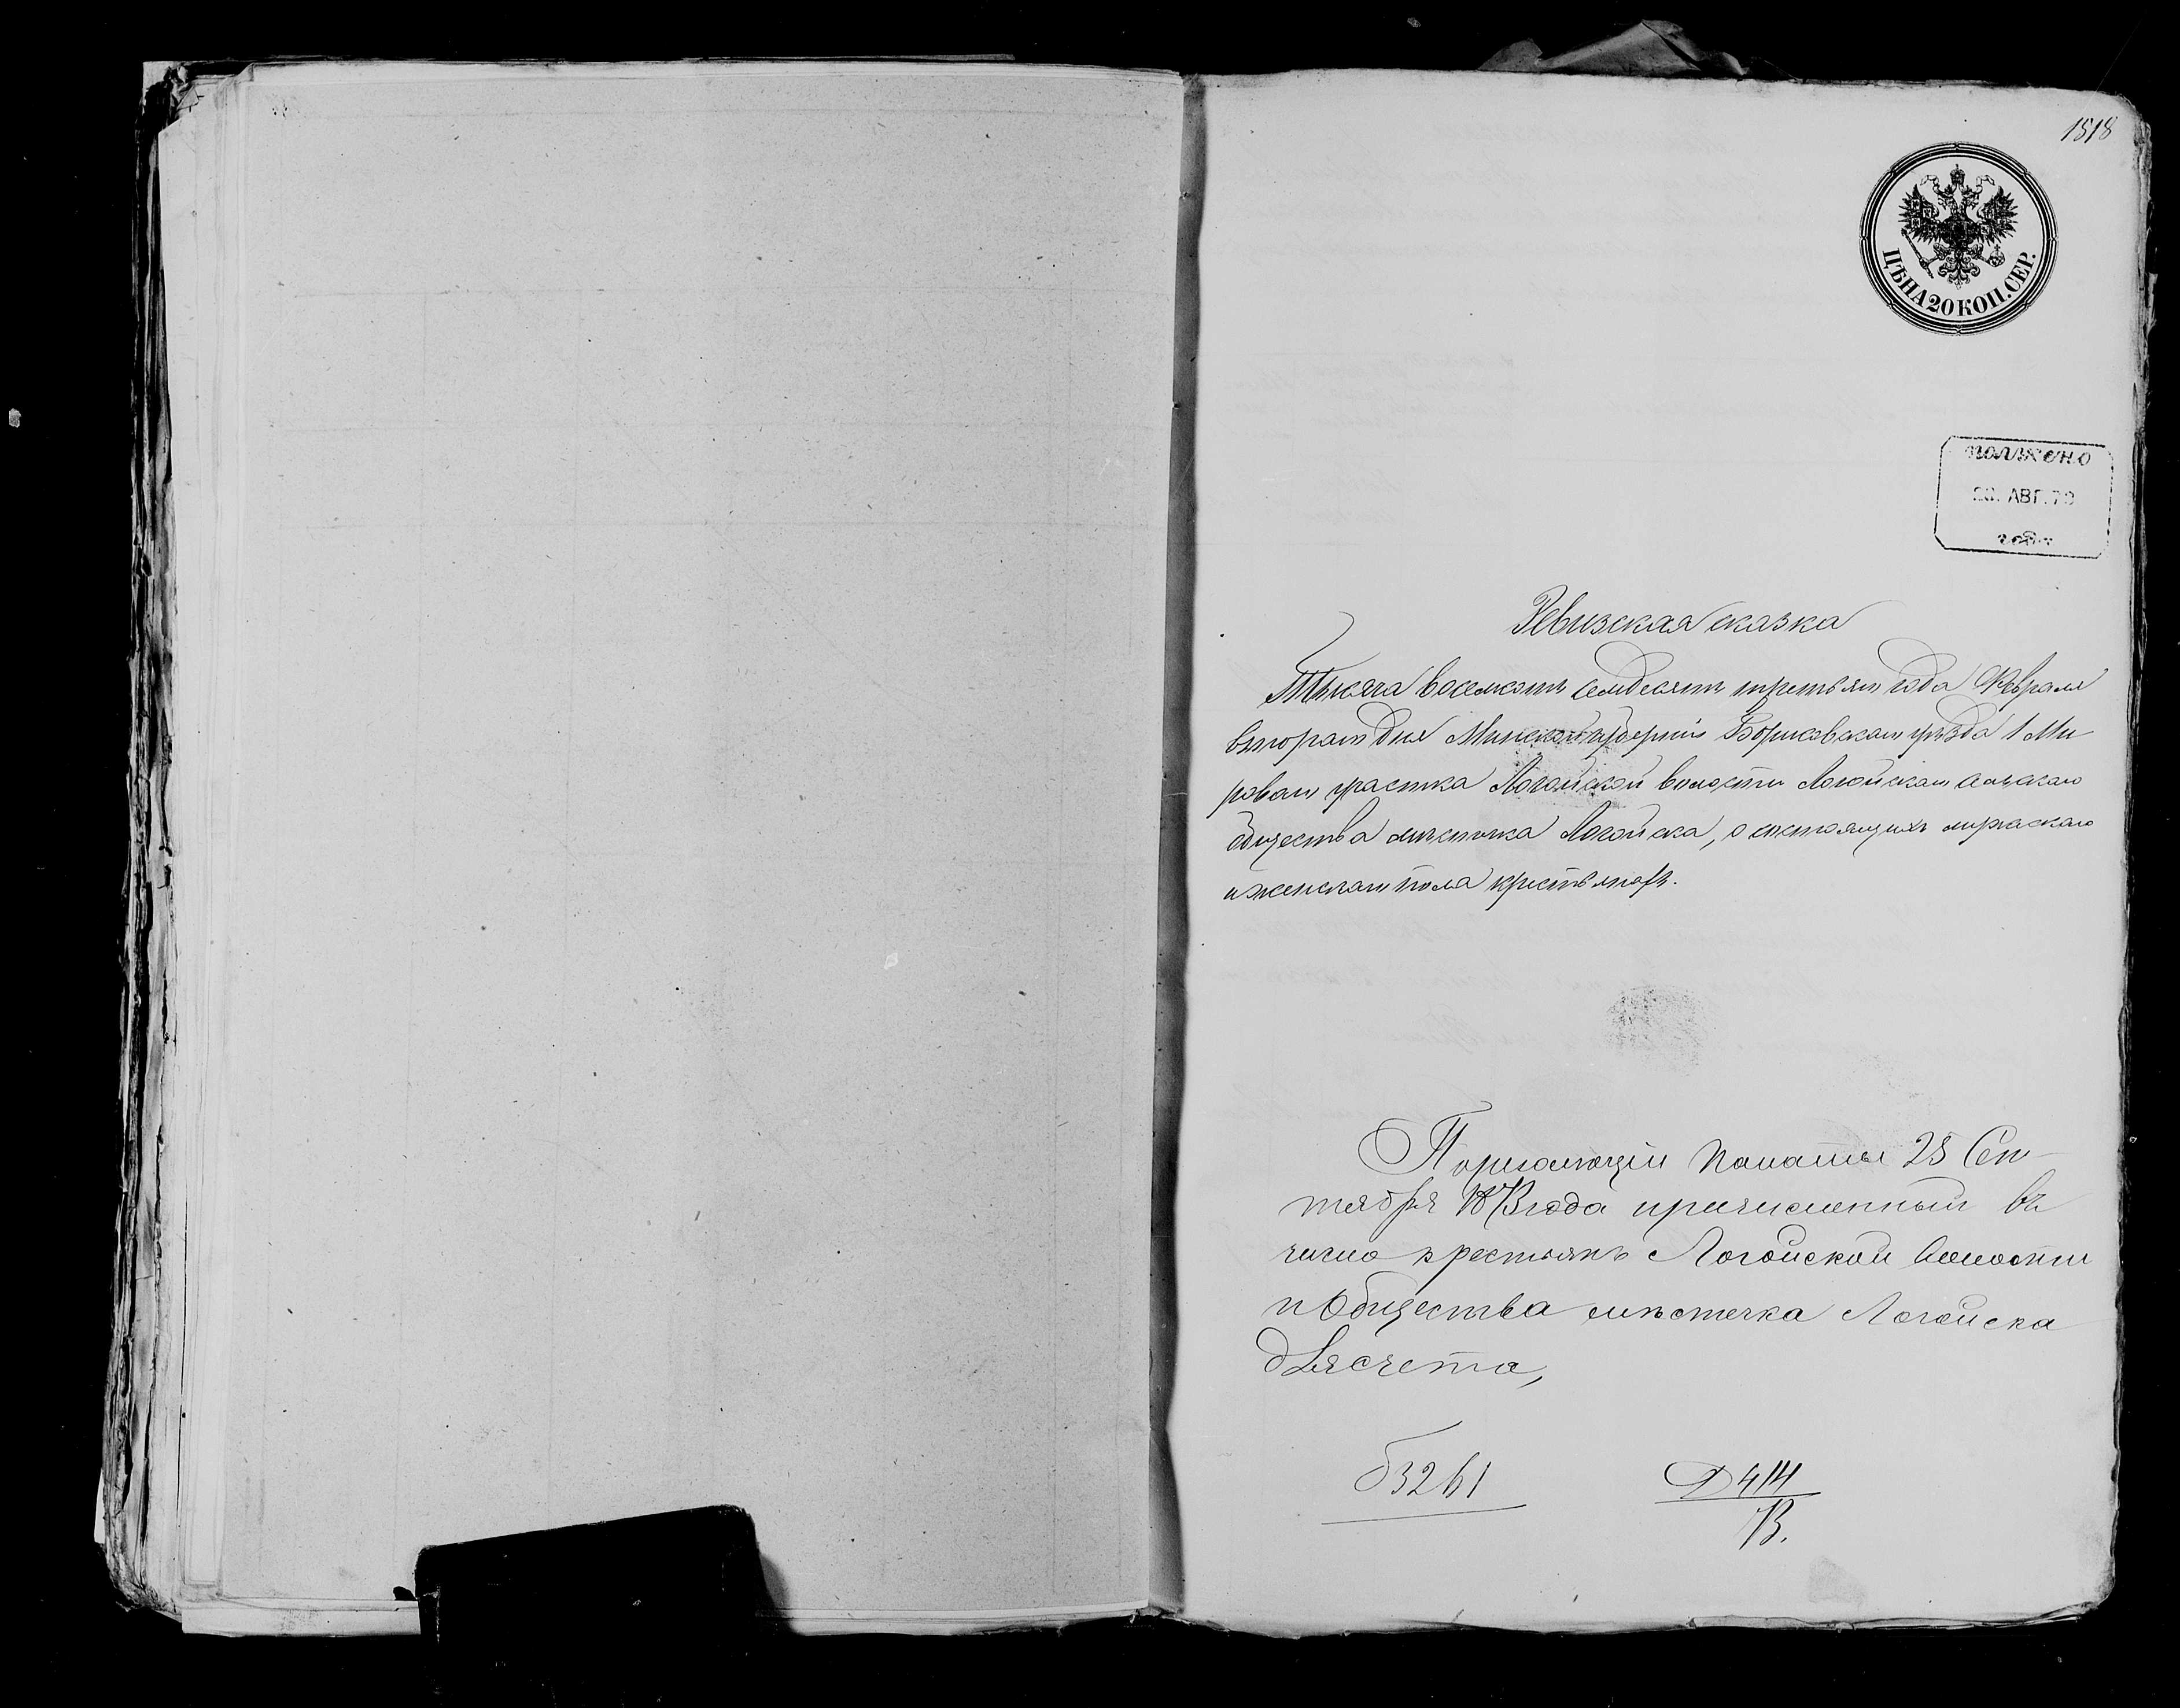 1518
ЦѢНА 20 КОП. СЕР.
АВГ. 73
Ревизская сказка
Тысяча восемьсотъ семдесятъ третьяго года Февраля
втораго дня Минской губерніи Борисовскаго уѣзда 1 Ми
роваго участка Логойской волости Логойскаго сельскаго
общества мѣстечка Логойска, о состоящихъ мужескаго
и женскаго пола крестьянахъ.
Палаты 25 Сен-
тября 1873 года причисленный въ
число крестьянъ Логойской Волости
и Общества мѣстечка Логойска
для счета,
53261
Д 414
73.